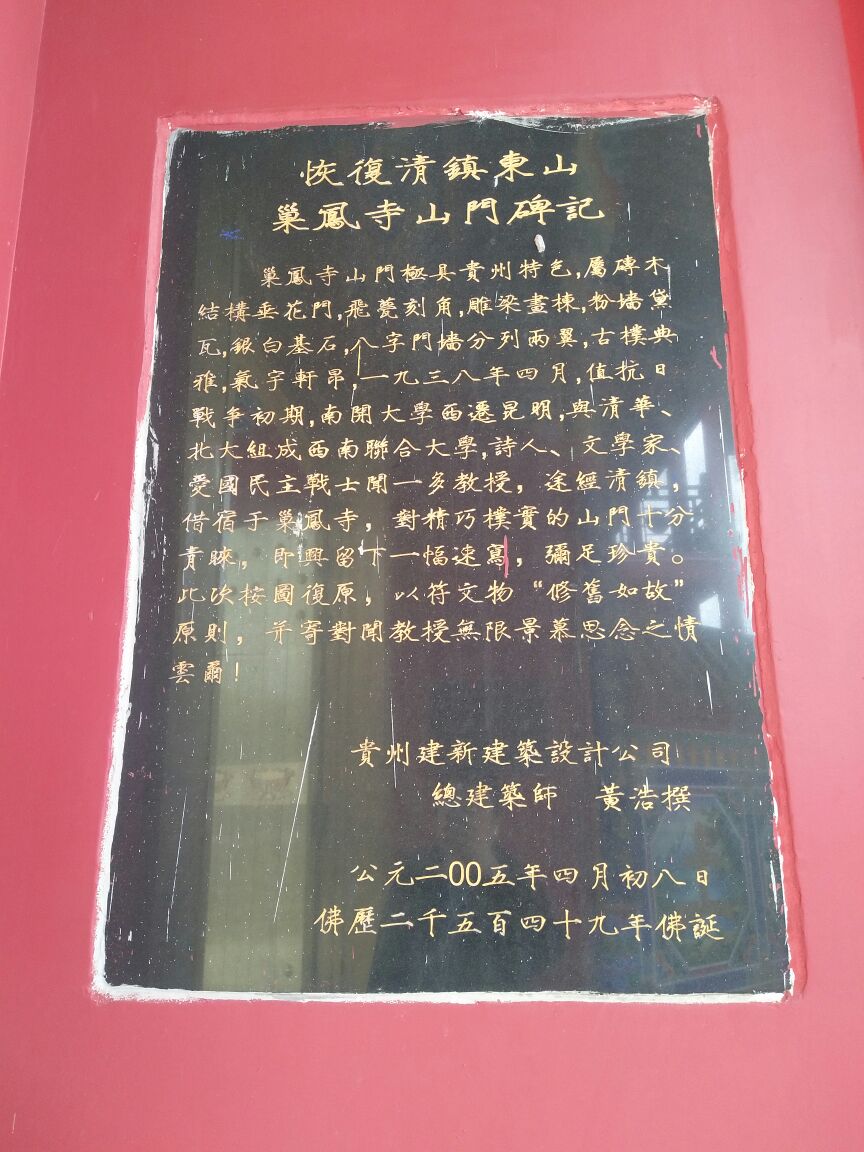 恢復清鎮東山
巢鳳寺山門碑記
巢鳳寺山門極具貴州特色,屬磚木
結構垂花門,飛甍刻角,雕梁畫棟,粉墻黛
瓦,銀白基石,八字門墻分列兩翼,古樸典
雅,氣宇軒昂,一九三八年四月,值抗日
戰爭初期,南開大學西遷昆明,與清華、
北大組成西南聯合大學,詩人、文學家、
愛國民主戰士聞一多教授，途經清鎮，
借宿于巢鳳寺，對精巧樸實的山門十分
青睞，即興留下一幅速寫，彌足珍貴。
此次按圖復原，以符文物“修舊如故”
原則，并寄對聞教授無限景慕思念之情
雲爾！
貴州建新建築設計公司
總建築師 黃浩撰
公元二00五年四月初八日
佛歷二千五百四十九年佛誕